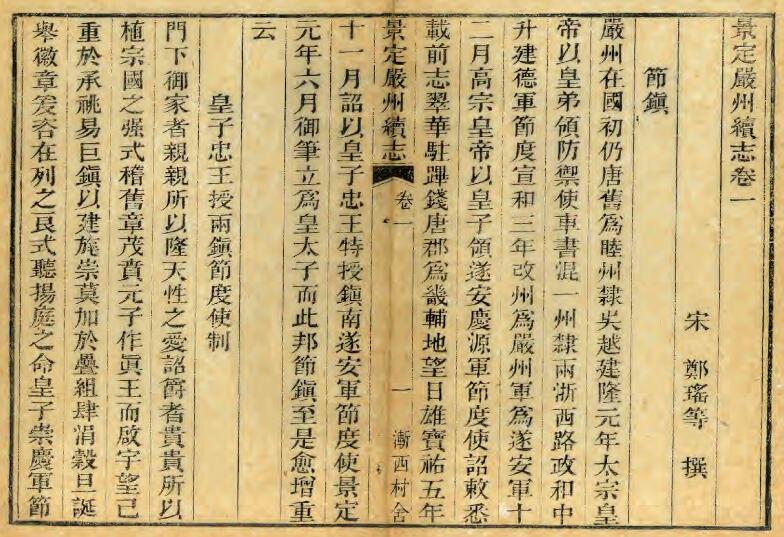 景定嚴州續志卷一
宋 鄭瑤等 撰
節鎮
嚴州在國初仍唐舊爲睦州隷吳越建隆元年太宗皇
帝以皇弟領防禦使車書混一州隷兩浙西路政和中
升建德軍節度宣和三年改州爲嚴州軍爲遂安軍十
二月高宗皇帝以皇子領遂安慶源軍節度使詔敕悉
載前志翠華駐蹕錢唐郡爲畿輔地望日雄寶祐五年
景定嚴州續志 卷一 一 漸西村舍
十一月詔以皇子忠王特授鎮南遂安軍節度使景定
元年六月御筆立爲皇太子而此邦節鎮至是愈增重
云
皇子忠王授兩鎮節度使制
門下御家者親親所以隆天性之愛詔爵者貴貴所以
植宗國之强式稽舊章茂賁元子作眞王而啟宇望已
重於承祧易巨鎮以建旄崇莫加於疊組肆涓穀旦誕
舉徽章爰咨在列之良式聽揚庭之命皇子崇慶軍節